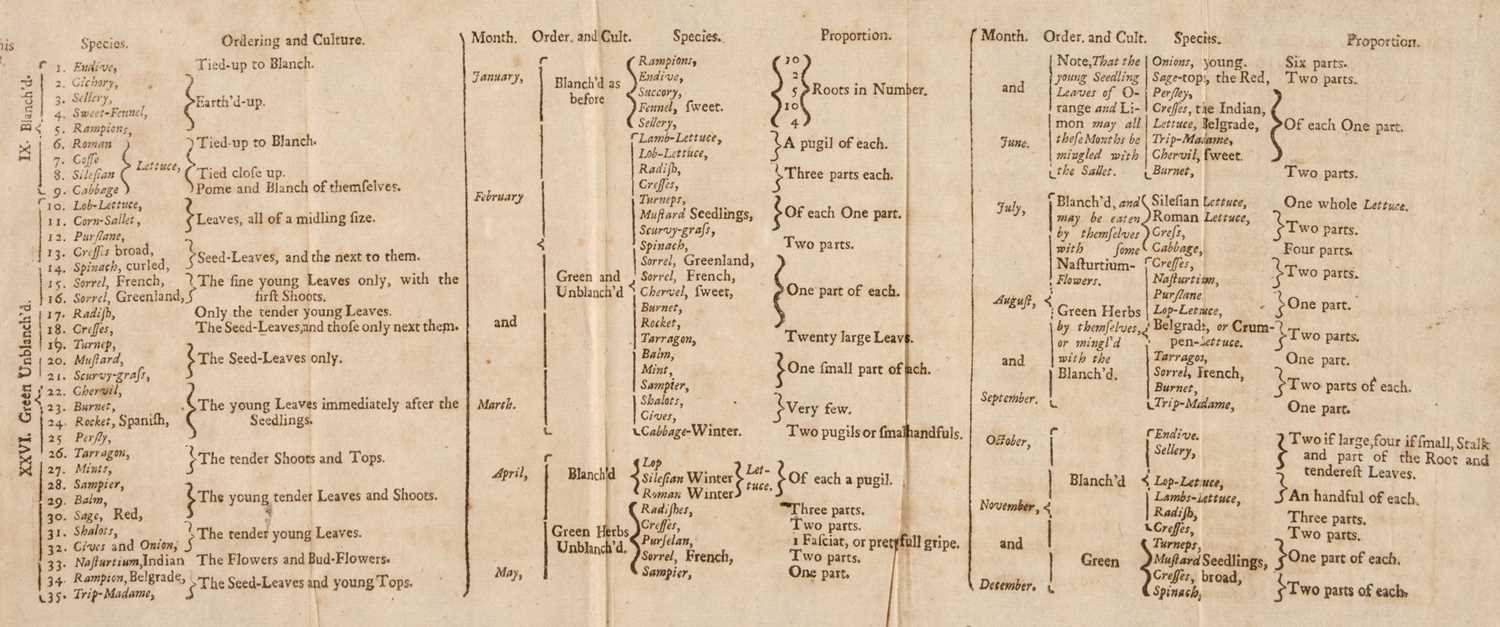 his
Species. Ordering and Culture.
IX. Blanch'd.
1. Endive, Tied-up to Blanch.
2. Cichory,
3. Sellery, Earth'd-up.
4. Sweet-Fennel,
5. Rampions,
6. Roman Tied-up to Blanch.
7. Coſſe Lettuce,
8. Sileſian Tied cloſe up.
9. Cabbage Pome and Blanch of themſelves.
XXVI. Green Unblanch'd.
10. Lob-Lettuce,
11. Corn-Sallet, Leaves, all of a midling ſize.
12. Purſlane,
13. Creſſes broad, Seed-Leaves, and the next to them.
14. Spinach, curled,
15. Sorrel, French, The fine young Leaves only, with the
16. Sorrel, Greenland, firſt Shoots.
17. Radiſh, Only the tender young Leaves.
18. Creſſes, The Seed-Leaves, and thoſe only next them.
19. Turnep,
20. Muſtard, The Seed-Leaves only.
21. Scurvy-graſs,
22. Chervil,
23. Burnet, The young Leaves immediately after the
24. Rocket, Spaniſh, Seedlings.
25 Perſly,
26. Tarragon, The tender Shoots and Tops.
27. Mints,
28. Sampier,
29. Balm, The young tender Leaves and Shoots.
30. Sage, Red,
31. Shalots, The tender young Leaves.
32. Cives and Onion,
33. Naſturtium, Indian The Flowers and Bud-Flowers.
34. Rampion, Belgrade, The Seed-Leaves and young Tops.
35. Trip-Madame,
Month. Order. and Cult. Species. Proportion.
January,
February
and
March.
Blanch'd as
before
Rampions, 10
Endive, 2
Succory, 5 Roots in Number.
Fennel, ſweet. 10
Sellery, 4
Green and
Unblanch'd
Lamb-Lettuce, A pugil of each.
Lob-Lettuce,
Radiſh, Three parts each.
Creſſes,
Turneps,
Muſtard Seedlings, Of each One part.
Scurvy-graſs,
Spinach, Two parts.
Sorrel, Greenland,
Sorrel, French,
Chervel, ſweet, One part of each.
Burnet,
Rocket,
Tarragon, Twenty large Leavs.
Balm,
Mint, One ſmall part of each.
Sampier,
Shalots, Very few.
Cives,
Cabbage-Winter. Two pugils or ſmall handfuls.
April,
May,
Blanch'd
Lop
Sileſian Winter Let-
tuce. Of each a pugil.
Roman Winter
Green Herbs
Unblanch'd.
Radiſhes, Three parts.
Creſſes, Two parts.
Purſelan, 1 Faſciat, or pretty full gripe.
Sorrel, French, Two parts.
Sampier, One part.
Month. Order. and Cult. Species. Proportion.
and
June.
Note, That the
young Seedling
Leaves of O-
range and Li-
mon may all
theſe Months be
mingled with
the Sallet.
Onions, young. Six parts.
Sage-tops, the Red, Two parts.
Perſley,
Creſſes, the Indian,
Lettuce, Belgrade, Of each One part.
Trip-Madame,
Chervil, ſweet.
Burnet, Two parts.
July,
Auguſt,
and
September.
Blanch'd, and
may be eaten
by themſelves
with ſome
Naſturtium-
Flowers.
Sileſian Lettuce, One whole Lettuce.
Roman Lettuce, Two parts.
Creſs,
Cabbage, Four parts.
Green Herbs
by themſelves,
or mingl'd
with the
Blanch'd.
Creſſes, Two parts.
Naſturtium,
Purſlane One part.
Lop-Lettuce,
Belgrade, or Crum-
pen-Lettuce. Two parts.
Tarragon, One part.
Sorrel, French, Two parts of each.
Burnet,
Trip-Madame, One part.
October,
November,
and
December.
Blanch'd
Endive. Two if large, four if ſmall, Stalk
Sellery, and part of the Root and
tendereſt Leaves.
Lop-Lettuce,
Lambs-Lettuce, An handful of each.
Radiſh, Three parts.
Creſſes, Two parts.
Green
Turneps,
Muſtard Seedlings, One part of each.
Creſſes, broad, Two parts of each.
Spinach,